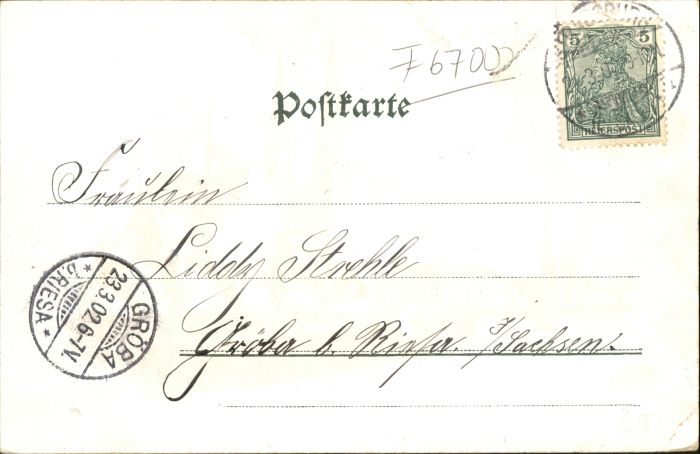 5 5
REICHSPOST
F 6700
Postkarte
Fräulein
Liddy Strehle
Gröba b. Riesa. i/Sachsen.
GRÖBA
23.3.02.6-7V.
* b.RIESA *